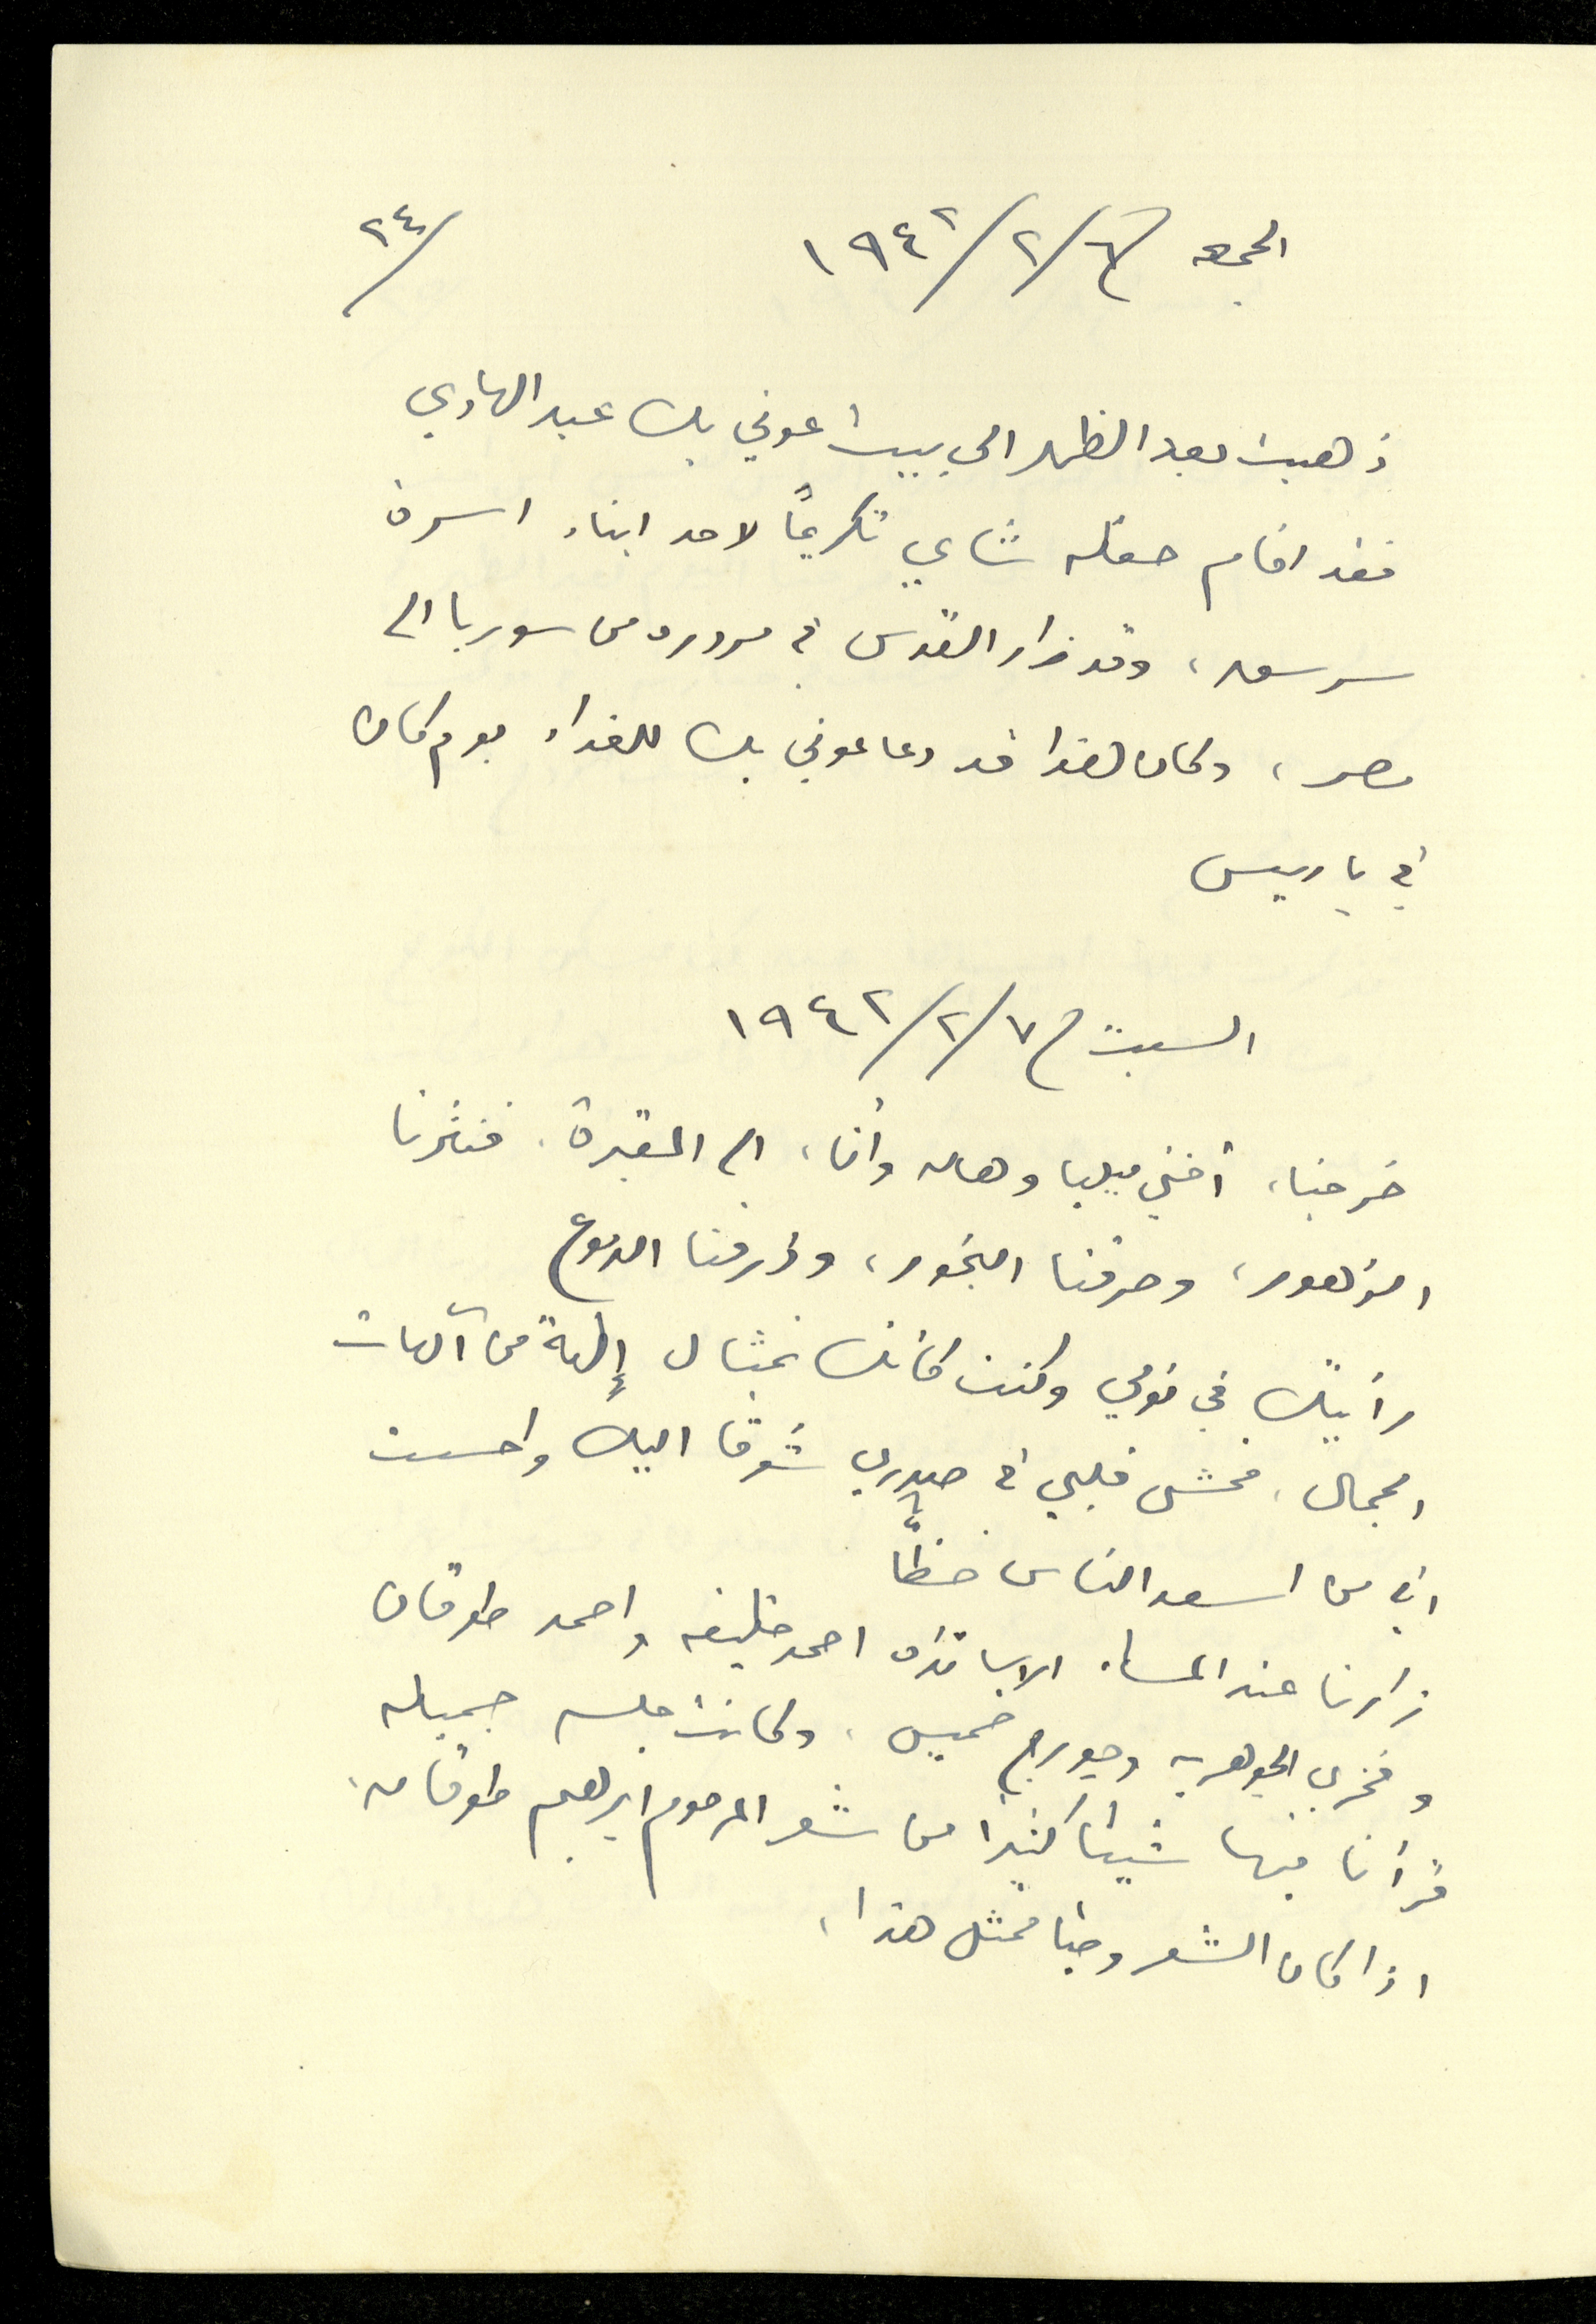 الجمعه ٦/٢/١٩٤٢
/٢٤
ذهبت بعد الظهر الى بيت عوني بك عبد الهادي
فقد اقام حفله شاي تكريمًا لاحد ابناء اسرة
سرسق، وقد زار القدس في مروره من سوريا الى
مصر، وكان هذا قد دعا عوني بك للغداء يوم كان
في باريس
السبت ٧/٢/١٩٤٢
خرجنا، أختي ميليا وهاله وأنا، الى المقبرة. فنثرنا
الزهور، وحرقنا البخور، وذرفنا الدموع
رأيتك في نومي وكنت كأنك تمثال إلهة من آلهات
الجمال. فمشى قلبي في صدري شوقا اليك واحسست
اني من اسعد الناس حظًّا
زارنا عند المساء الاساتذه احمد خليفه واحمد طوقان
وفخري الجوهريه وجورج خميس. وكانت جلسه جميله
قرأنا فيها شيئا كثيرا من شعر المرحوم ابرهيم طوقان.
اذا كان الشعر وحيا فمثل هذا.